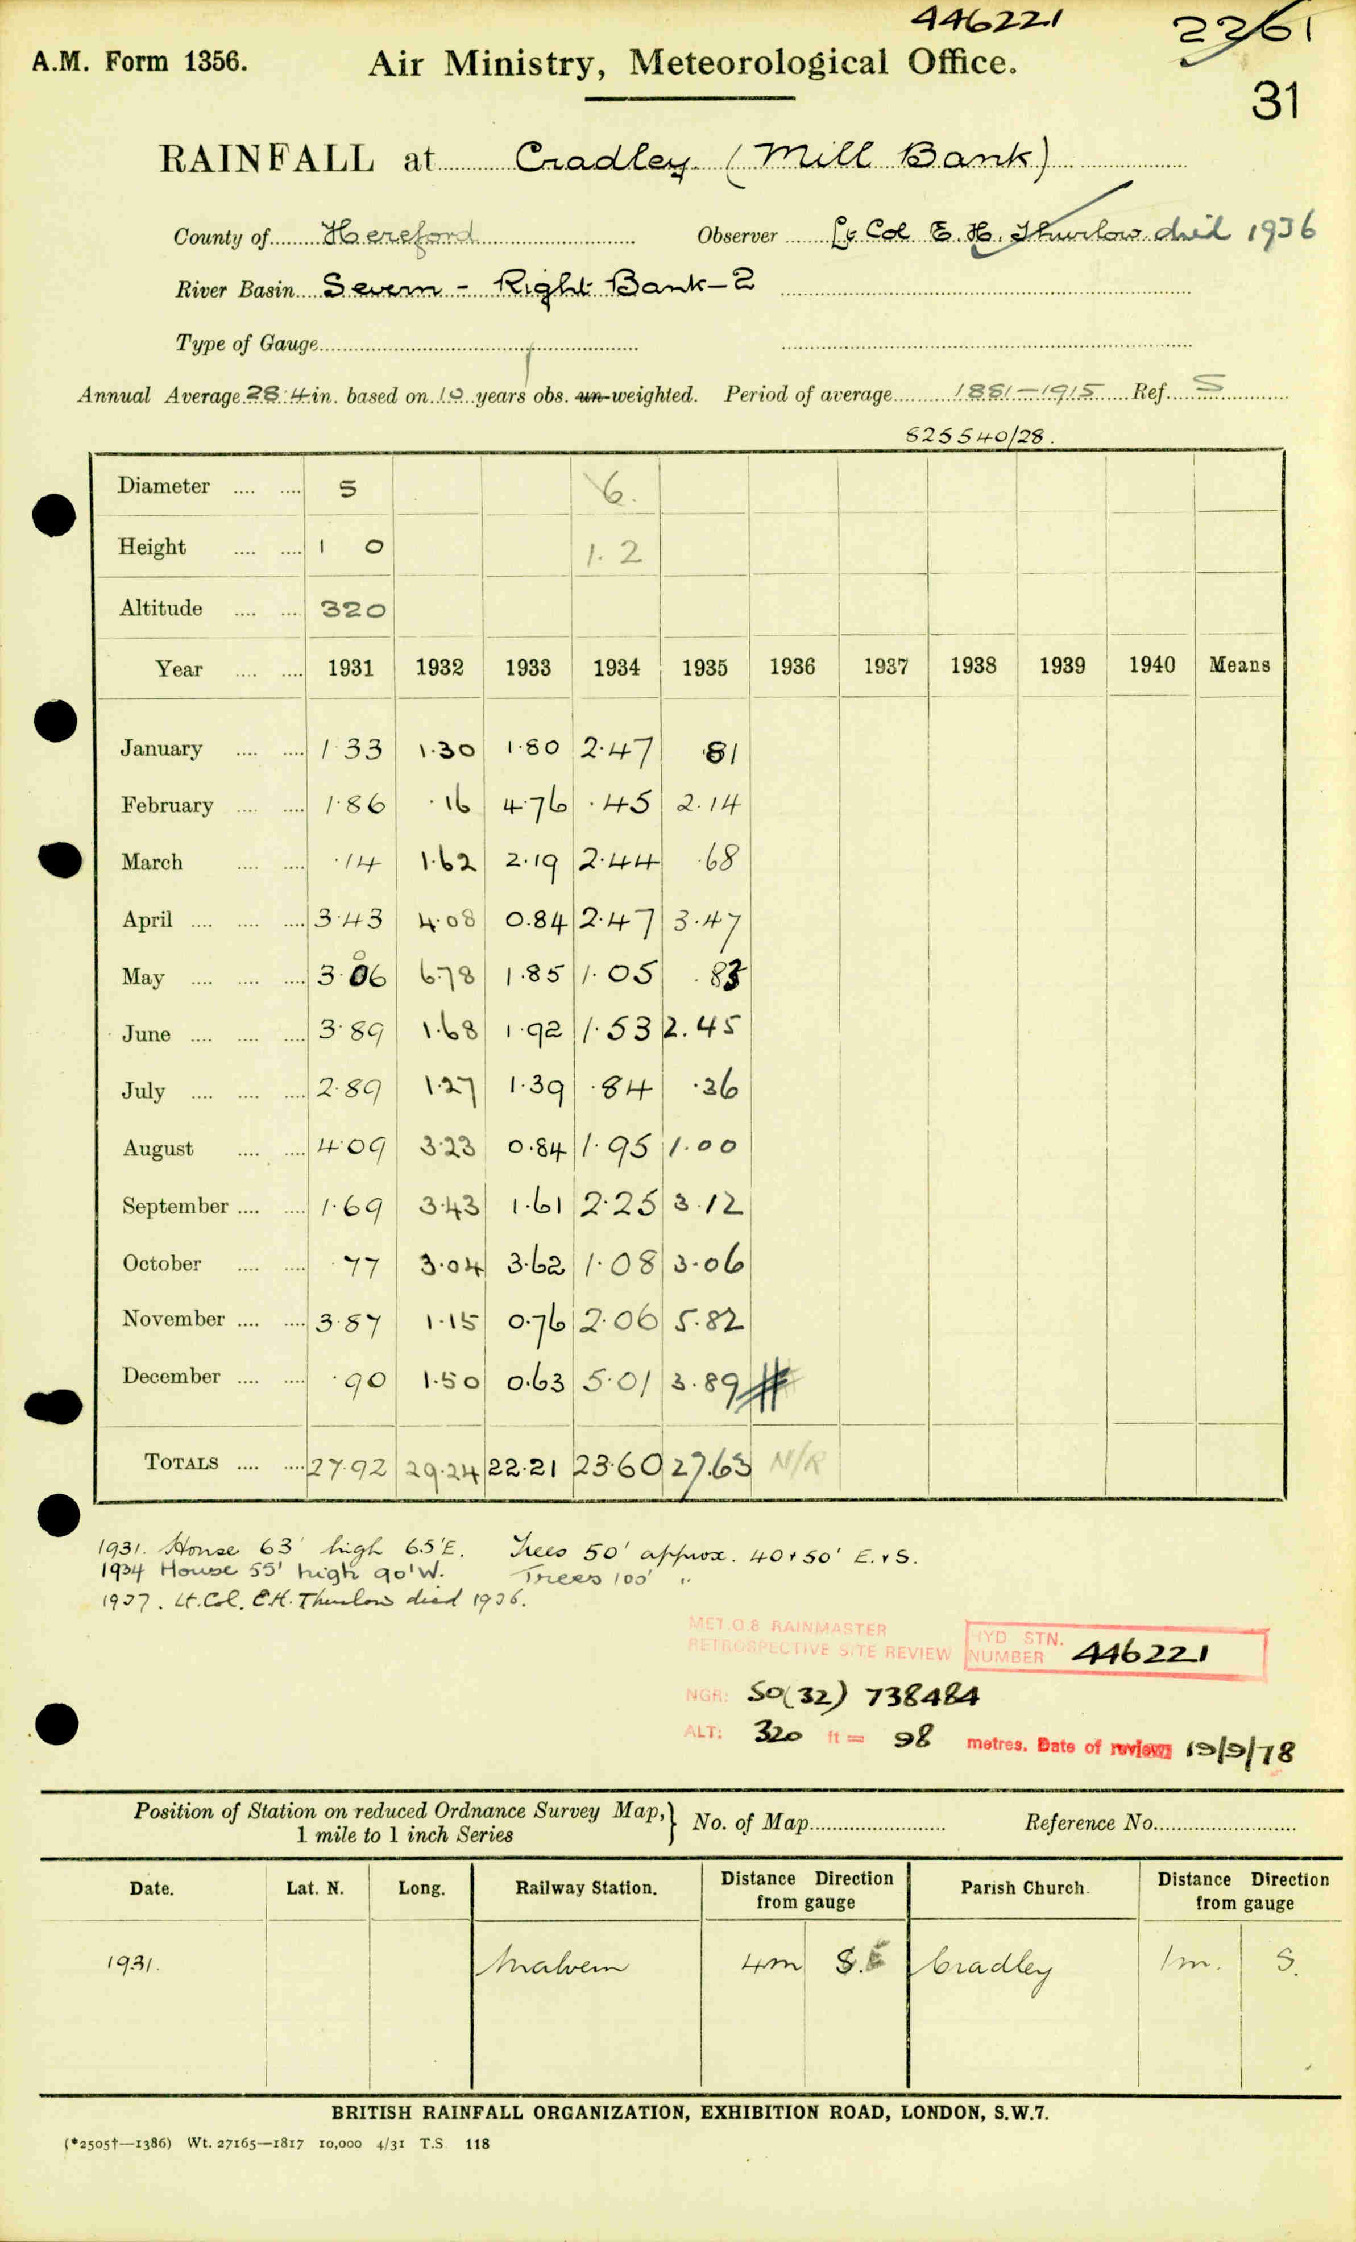 446221 2261
A.M. Form 1356. Air Ministry, Meteorological Office.
31
RAINFALL at Cradley (Mill Bank)
County of Hereford Observer Lt Col E. H. Thurlow died 1936
River Basin Severn - Right Bank-2
Type of Gauge
Annual Average 28.4 in. based on 10 years obs. un-weighted. Period of average 1881-1915 Ref. S
825540/28.
Diameter 5 6.
Height 1 0 1.2
Altitude 320
Year 1931 1932 1933 1934 1935 1936 1937 1938 1939 1940 Means
January 1.33 1.30 1.80 2.47 .81
February 1.86 .16 4.76 .45 2.14
March .14 1.62 2.19 2.44 .68
April 3.43 4.08 0.84 2.47 3.47
May 3.06 6.78 1.85 1.05 .83
June 3.89 1.68 1.92 1.53 2.45
July 2.89 1.27 1.39 .84 .36
August 4.09 3.23 0.84 1.95 1.00
September 1.69 3.43 1.61 2.25 3.12
October .77 3.04 3.62 1.08 3.06
November 3.87 1.15 0.76 2.06 5.82
December .90 1.50 0.63 5.01 3.89
TOTALS 27.92 29.24 22.21 23.60 27.63 N/R
1931. House 63' high 65'E. Trees 50' approx. 40+50' E.+S.
1934 House 55' high 90'W. Trees 100' "
1937. Lt. Col. E.H. Thurlow died 1936.
MET.O.8 RAINMASTER
RETROSPECTIVE SITE REVIEW HYD STN. NUMBER 446221
NGR: SO(32) 738484
ALT: 320 ft = 98 metres. Date of review 19/9/78
Position of Station on reduced Ordnance Survey Map, 1 mile to 1 inch Series No. of Map Reference No.
Date. Lat. N. Long. Railway Station. Distance Direction from gauge Parish Church. Distance Direction from gauge
1931. Malvern 4m S.E Cradley 1m. S.
BRITISH RAINFALL ORGANIZATION, EXHIBITION ROAD, LONDON, S.W.7.
(*2505†—1386) Wt. 27165—1817 10,000 4/31 T.S 118